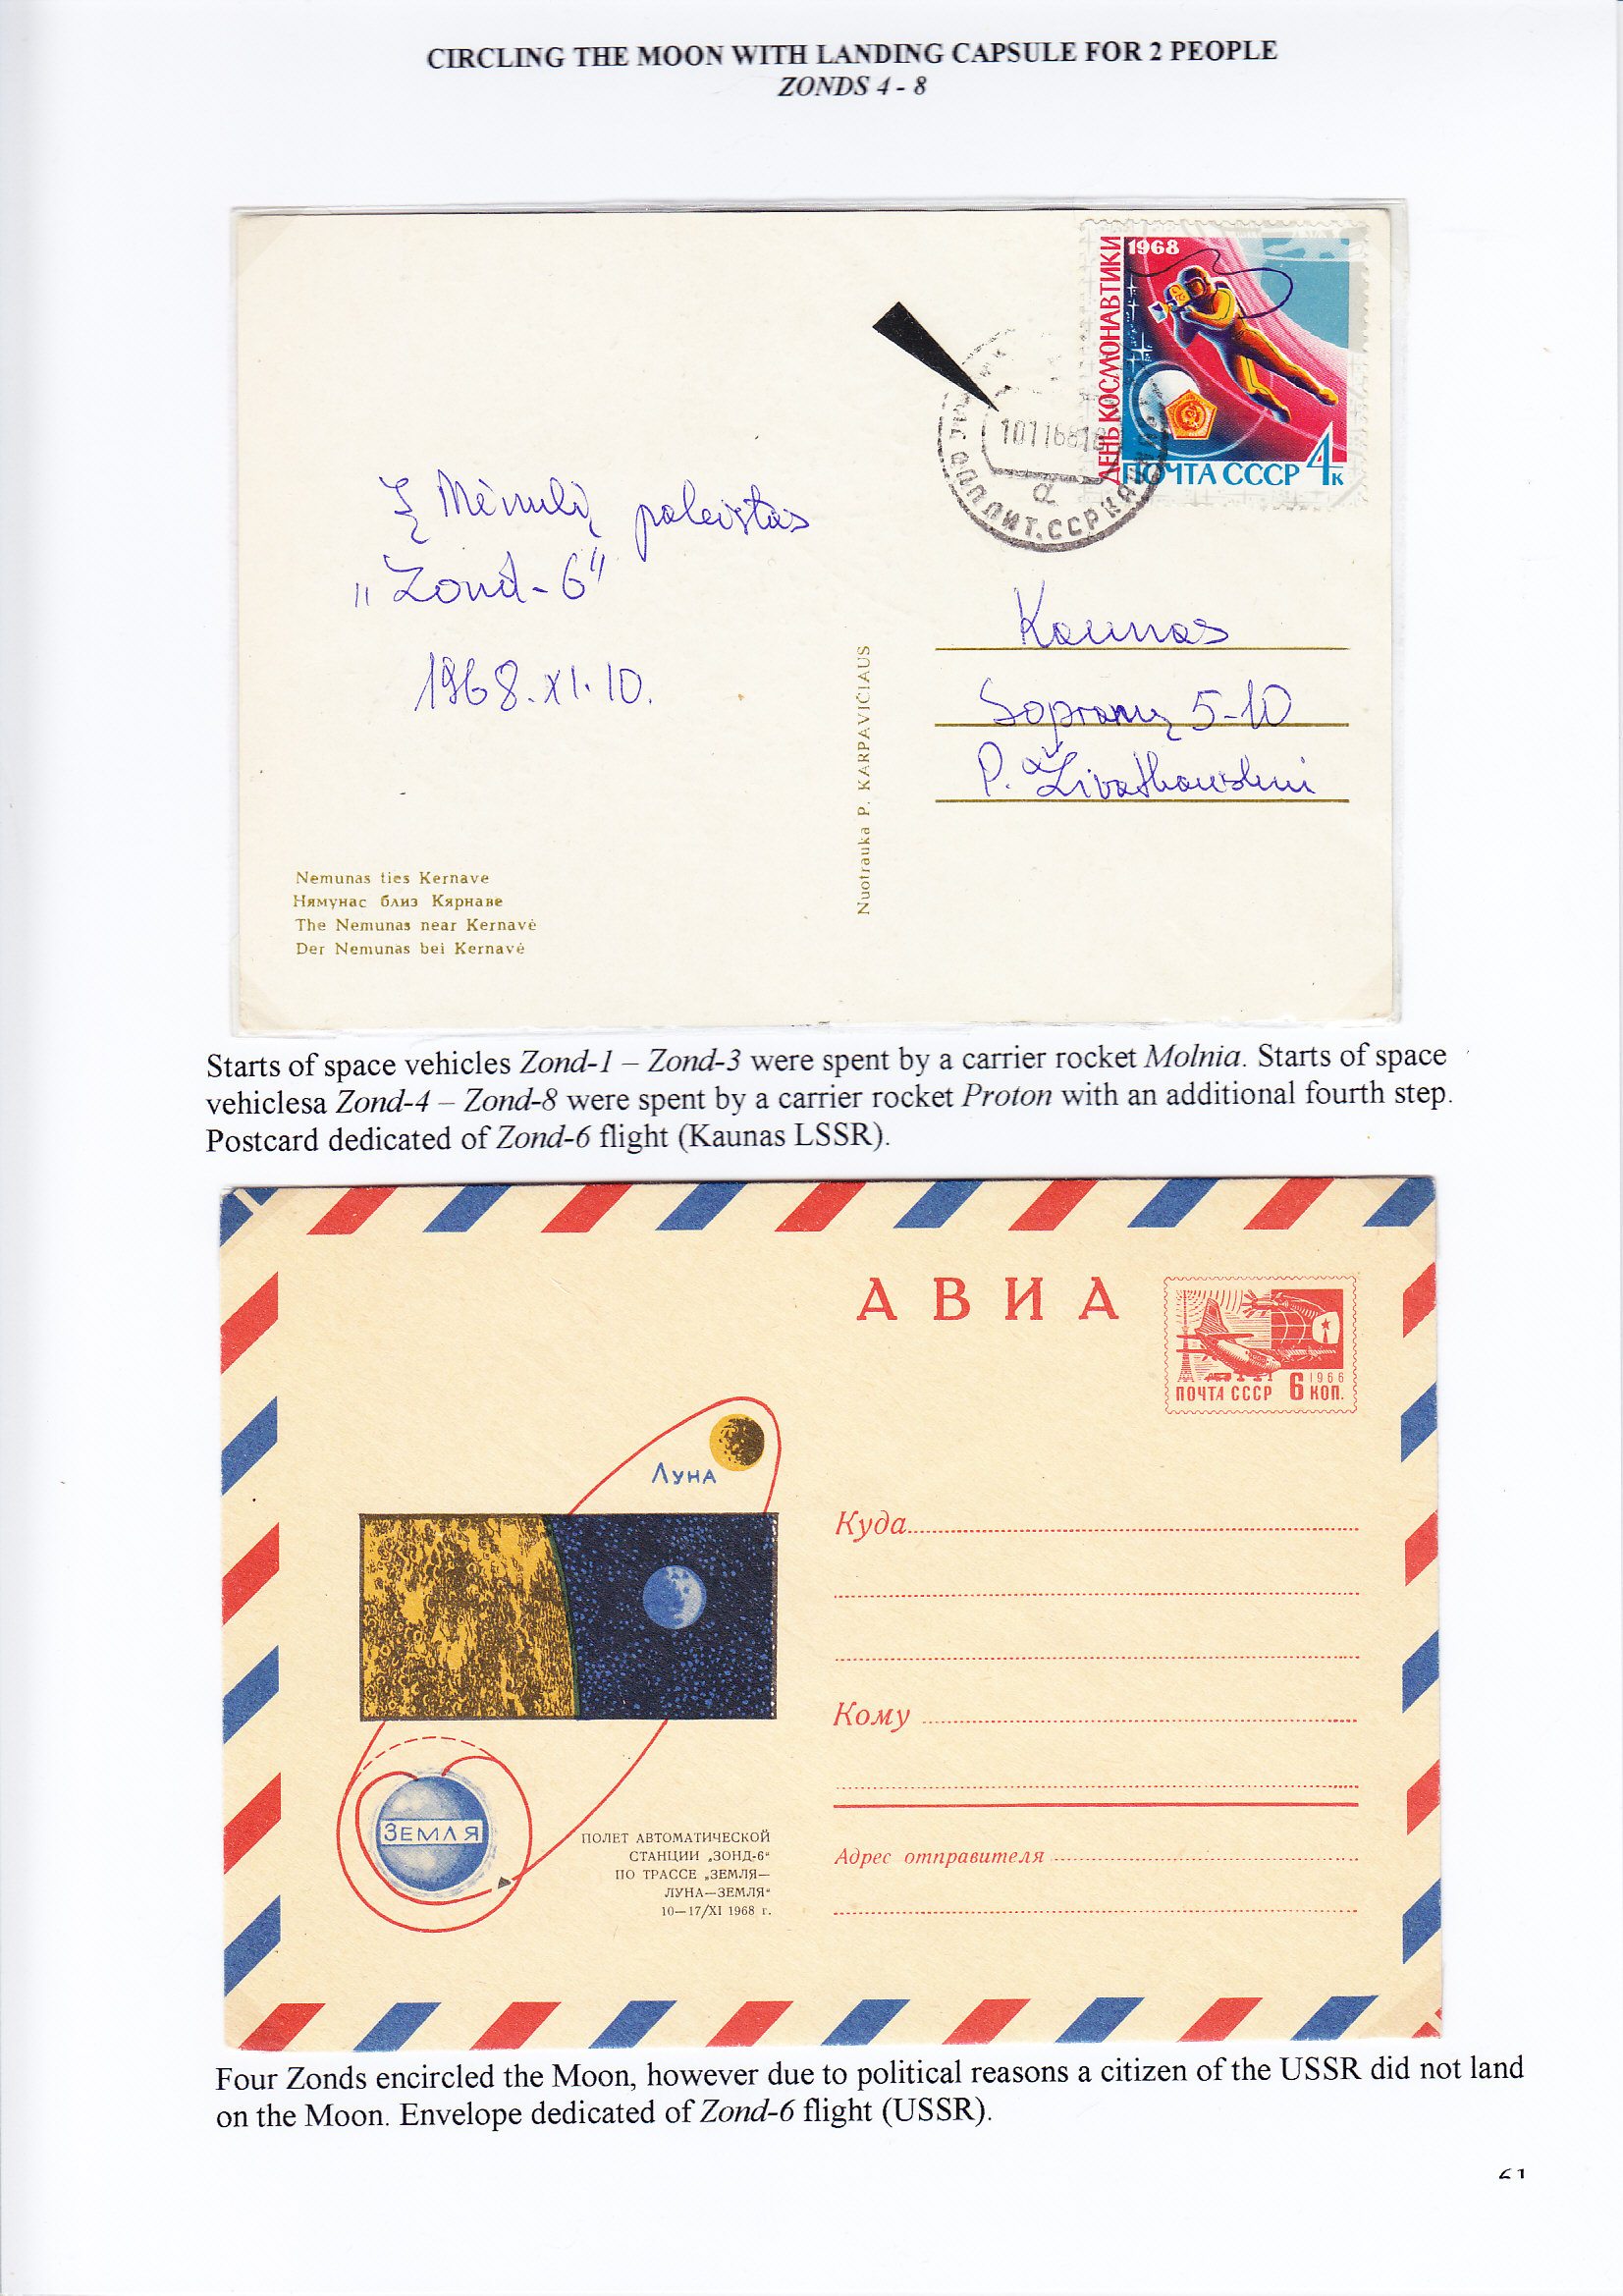 CIRCLING THE MOON WITH LANDING CAPSULE FOR 2 PEOPLE
ZONDS 4 - 8
1968
ДЕНЬ КОСМОНАВТИКИ
ПОЧТА СССР 4к
ЛИТ.ССР
Į Mėnulį paleistas
„Zond-6"
1968.XI.10.
Kaunas
5-10
P.
Nuotrauka P. KARPAVIČIAUS
Nemunas ties Kernave
Нямунас близ Кярнаве
The Nemunas near Kernavė
Der Nemunas bei Kernavė
Starts of space vehicles Zond-1 – Zond-3 were spent by a carrier rocket Molnia. Starts of space
vehiclesa Zond-4 – Zond-8 were spent by a carrier rocket Proton with an additional fourth step.
Postcard dedicated of Zond-6 flight (Kaunas LSSR).
АВИА
1966
ПОЧТА СССР 6 КОП.
ЛУНА
Куда
Кому
ЗЕМЛЯ
ПОЛЕТ АВТОМАТИЧЕСКОЙ
СТАНЦИИ „ЗОНД-6“
ПО ТРАССЕ „ЗЕМЛЯ—
ЛУНА—ЗЕМЛЯ“
10—17/XI 1968 г.
Адрес отправителя
Four Zonds encircled the Moon, however due to political reasons a citizen of the USSR did not land
on the Moon. Envelope dedicated of Zond-6 flight (USSR).